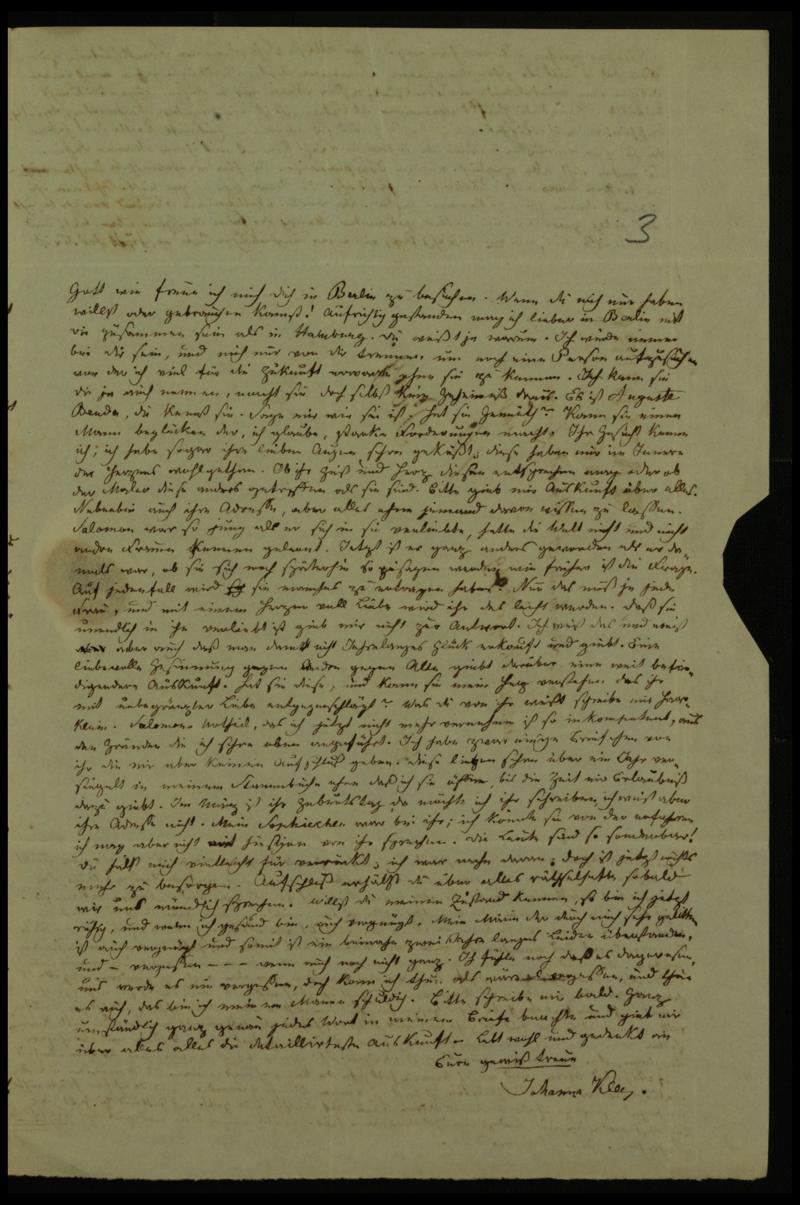 3
Gott wie freue ich mich dich in Berlin zu besuchen. Wenn du mich nur haben
willst oder gebrauchen kannst! Aufrichtig gestanden mag ich lieber in Berlin mit
dir zusammen sein als in Hamburg. Du weißt ja warum. Ich würde immer
bei dir sein, und mich nur von dir trennen um noch eine Person aufzusuchen
von der ich viel für die Zukunft erwarte ohne sie zu kennen. Ich kann sie
dir ja auch nennen, macht sie doch selbst kein Geheimniß daraus. Es ist Auguste
Benda, du kennst sie. Sage mir wie sie ist, hat sie Gemüth? Kann sie einen
Mann beglücken der, ich glaube, starke Forderungen macht. Ihr Gesicht kenne
ich; ich habe sogar ihre lieben Augen schon geküßt, diese haben mir im Innern
des Herzens wohlgethan. Ob ihr Geist und Herz diesen entsprechen mag oder ob
der Maler diese anders getroffen als sie sind. Bitte gieb mir Auskunft über alles.
Nebenbei auch ihre Adresse, aber alles ohne jemand davon wissen zu lassen.
Salomon war so jung als er sich in sie verliebte, hatte die Welt nicht und nicht
andre Frauen kennen gelernt. Jetzt ist er ganz anders geworden als er da-
mals war, ob sie sich noch späterhin so zusagen werden wie früher ist die Frage.
Auf jedenfall wird sie manches zu ertragen haben. Nun das muß ja jede
Frau, und mit einem Herzen voll Liebe wird ihr das leicht werden. Daß sie
unendlich in ihn verliebt ist gieb mir nicht zur Antwort. Ich weiß das und weiß
aber auch daß man damit nicht Jahrelanges Glück erkauft und giebt. Eine
liebevolle Gesinnung gegen Andre gegen Alle giebt darüber eine weit befrie-
digendere Auskunft. Hat sie diese, und kann sie mein Herz verstehen das ihr
mit unbegränzter Liebe entgegenschlägt? Was du von ihr weißt schreibe mir haar-
klein. Salomons Urtheil, das ich jetzt nicht mehr vernehme ist so inkompetent, aus
den Gründen die ich schon oben angeführt. Ich habe zwar einige Briefchen von
ihr die mir aber keinen Aufschluß geben. Diese liegen schon über ein Jahr ver-
siegelt in meinem Stammbuche ohne daß ich sie öffne, bis die Zeit mir Erlaubniß
dazu giebt. Im März ist ihr Geburtstag da möchte ich ihr schreiben, ich weiß aber
ihre Adresse nicht. Mein Sophiechen war bei ihr; ich könnte sie von der erfahren
ich mag aber nicht mit von ihr sprechen. Die Leute sind so sonderbar!
Du hälst mich vielleicht für verrückt, ich war nahe daran; doch ist jetzt nichts
mehr zu besorgen. Aufschluß erhälst du über alles räthselhafte sobald
wir uns mündlich sprechen. Willst du meinen Zustand kennen, so bin ich jetzt
ruhig, und wenn ich gesund bin, auch vergnügt. Mein Mann der durch mich sehr gelitten
ist auch vergnügt und somit ist ein beinahe zwei Jahre langes Leiden überstanden,
und – vergessen – – – wenn auch noch nicht ganz. Ich fühle noch daß es dagewesen,
und werde es nie vergessen, doch kann ich thun als wäre es vergessen, und thue
es auch, das bin ich meinem Manne schuldig. Bitte schreibe mir bald. Ganz
umständlich ganz genau jedes Wort in meinem Briefe beachte und gieb mir
über alles alles die detaillirteste Auskunft. Lebt wohl und gedenkt an
Eure gewiß treue
Johanna Kley.